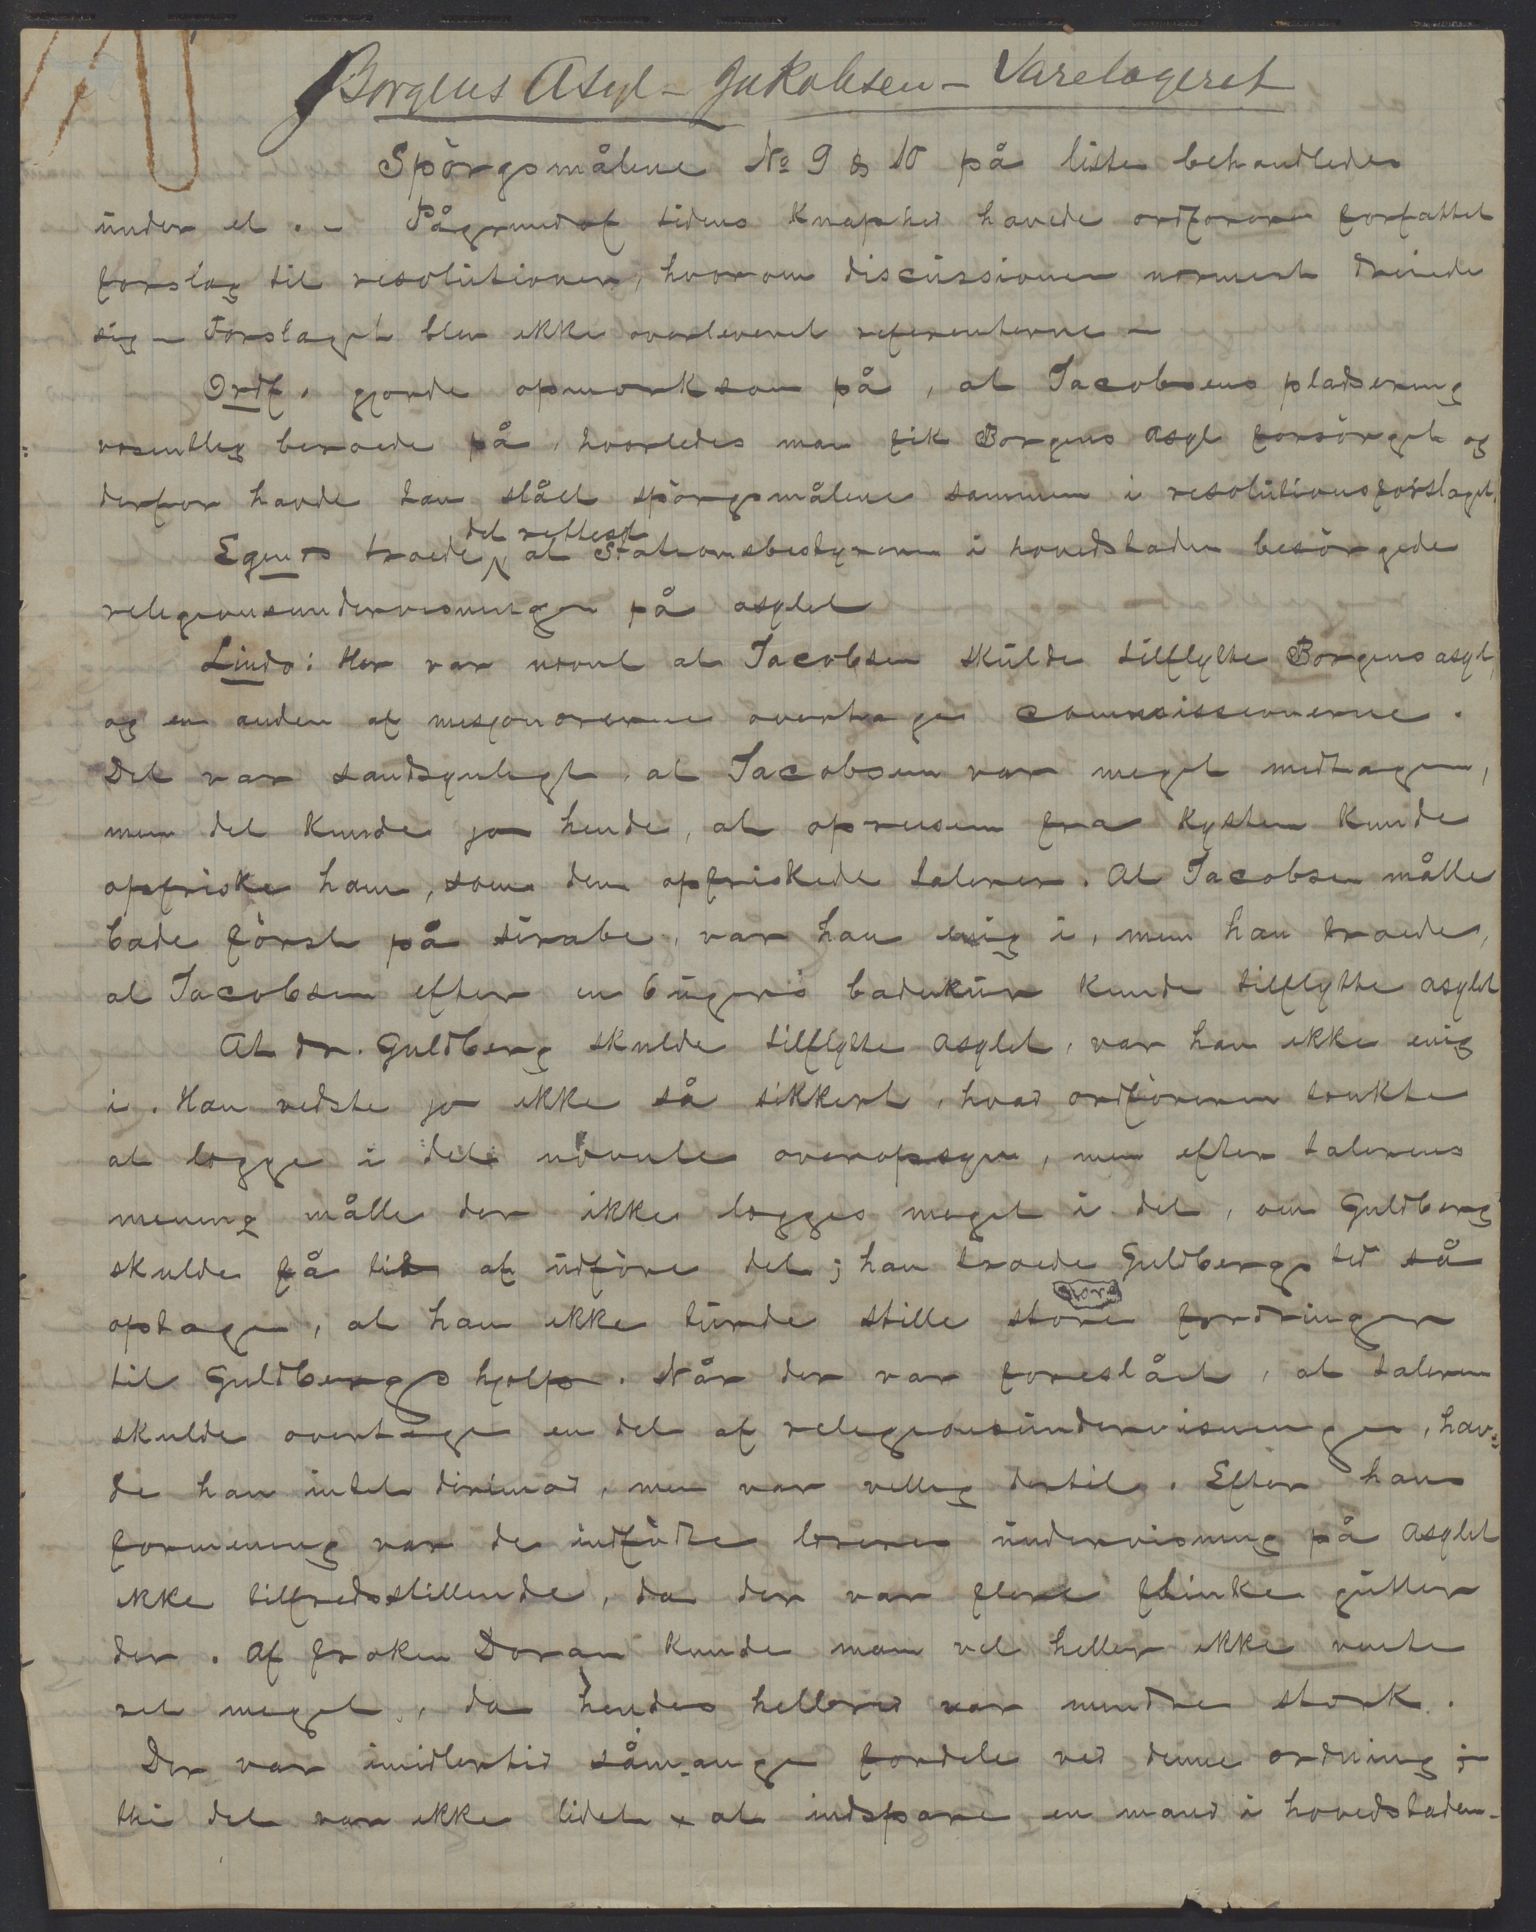 Borgens Asyl – Jakobsen – Varelageret
Spörgsmålene № 9 & 10 på liste behandledes
under et. – Pågrund af tidens knaphed havde ordföreren forfattet
forslag til resolutioner, hvorom discussionen nærmest dreiede
sig – Forslaget blev ikke overleveret referenterne –
Ordf. gjorde opmærksom på, at Jacobsens pladsering
væsentlig beroede på, hvorledes man fik Borgens Asyl forsörget og
derfor havde han slået spörgsmålene sammen i resolutionsforslaget.
det rettest
Egenæs troede, at Stationsbestyreren i hovedstaden besörgede
religionsundervisningen på asylet
Lindø: Her var nævnt at Jacobsen skulde tilflytte Borgens asyl,
og en anden af missionærerne overtage commissionerne.
Det var sandsynligt, at Jacobsen var meget medtagen,
men det kunde jo hende, at opreisen fra kysten kunde
opfriske ham, som den opfriskede taleren. At Jacobsen måtte
bade först på sirabe, var han enig i, men han troede,
at Jacobsen efter en 6 ugers badekur kunde tilflytte asylet
At dr. Guldberg skulde tilflytte asylet, var han ikke enig
i. Han vidste jo ikke så sikkert, hvad ordföreren tænkte
at lægge i det nævnte overopsyn, men efter talerens
mening måtte der ikke lægges meget i det, om Guldberg
skulde få tid at udföre det; han troede Guldbergs tid så
optagen, at han ikke turde stille store fordringer
til Guldbergs hjælp. Når der var foreslået, at taleren
skulde overtage en del af religionsundervisningen, hav-
de han intet derimod, men var villig dertil. Efter hans
formening var de indfödte læreres undervisning på Asylet
ikke tilfredsstillende, da der var flere flinke gutter
der. Af frøken Doran kunde man vel heller ikke vente
ret meget, da hendes helbred var mindre stærk.
Der var imidlertid såmange fordele ved denne ordning;
thi det var ikke lidet at indspare en mand i hovedstaden –